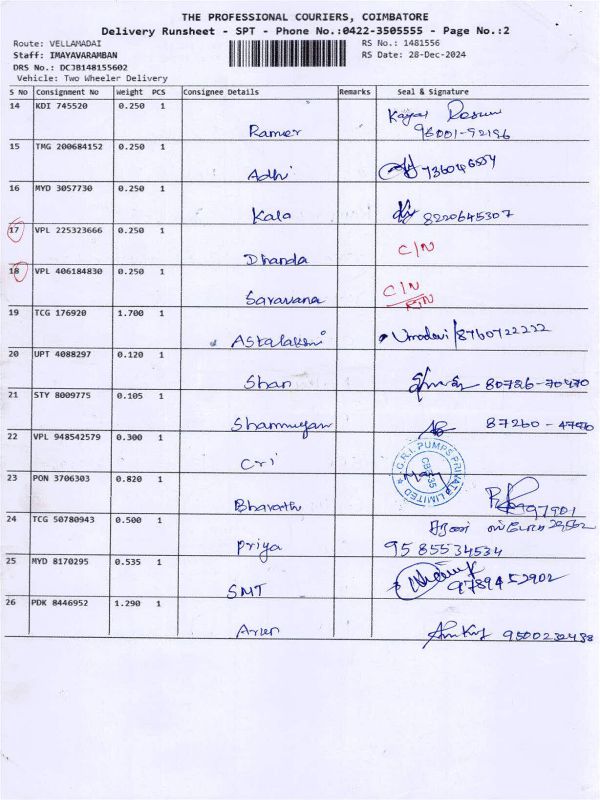 THE PROFESSIONAL COURIERS, COIMBATORE
Delivery Runsheet - SPT - Phone No.:0422-3505555 - Page No.:2
Route: VELLAMADAI RS No.: 1481556
Staff: IMAYAVARAMBAN RS Date: 28-Dec-2024
DRS No.: DC3B148155602
Vehicle: Two Wheeler Delivery
S No Consignment No Weight PCS Consignee Details Remarks Seal & Signature
14 KDI 745520 0.250 1
Ramer 96001-92196
15 TMG 200684152 0.250 1
Adhi
16 MYD 3057730 0.250 1
Kala 8220645307
17 VPL 225323666 0.250 1 C/N
Dhanda
18 VPL 406184830 0.250 1 C/N
Saravana RTN
19 TCG 176920 1.700 1
Astalakmi Umadevi/8760722222
20 UPT 4088297 0.120 1
Shan 80786-70470
21 STY 8009775 0.105 1
Shanmugam 87260-
22 VPL 948542579 0.300 1
Cri C.R.I. PUMPS PRIVATE LIMITED
23 PON 3706303 0.820 1
Bharath
24 TCG 50780943 0.500 1
Priya 9585534534
25 MYD 8170295 0.535 1
SMT 9789452902
26 PDK 8446952 1.290 1
Arun 9500232438